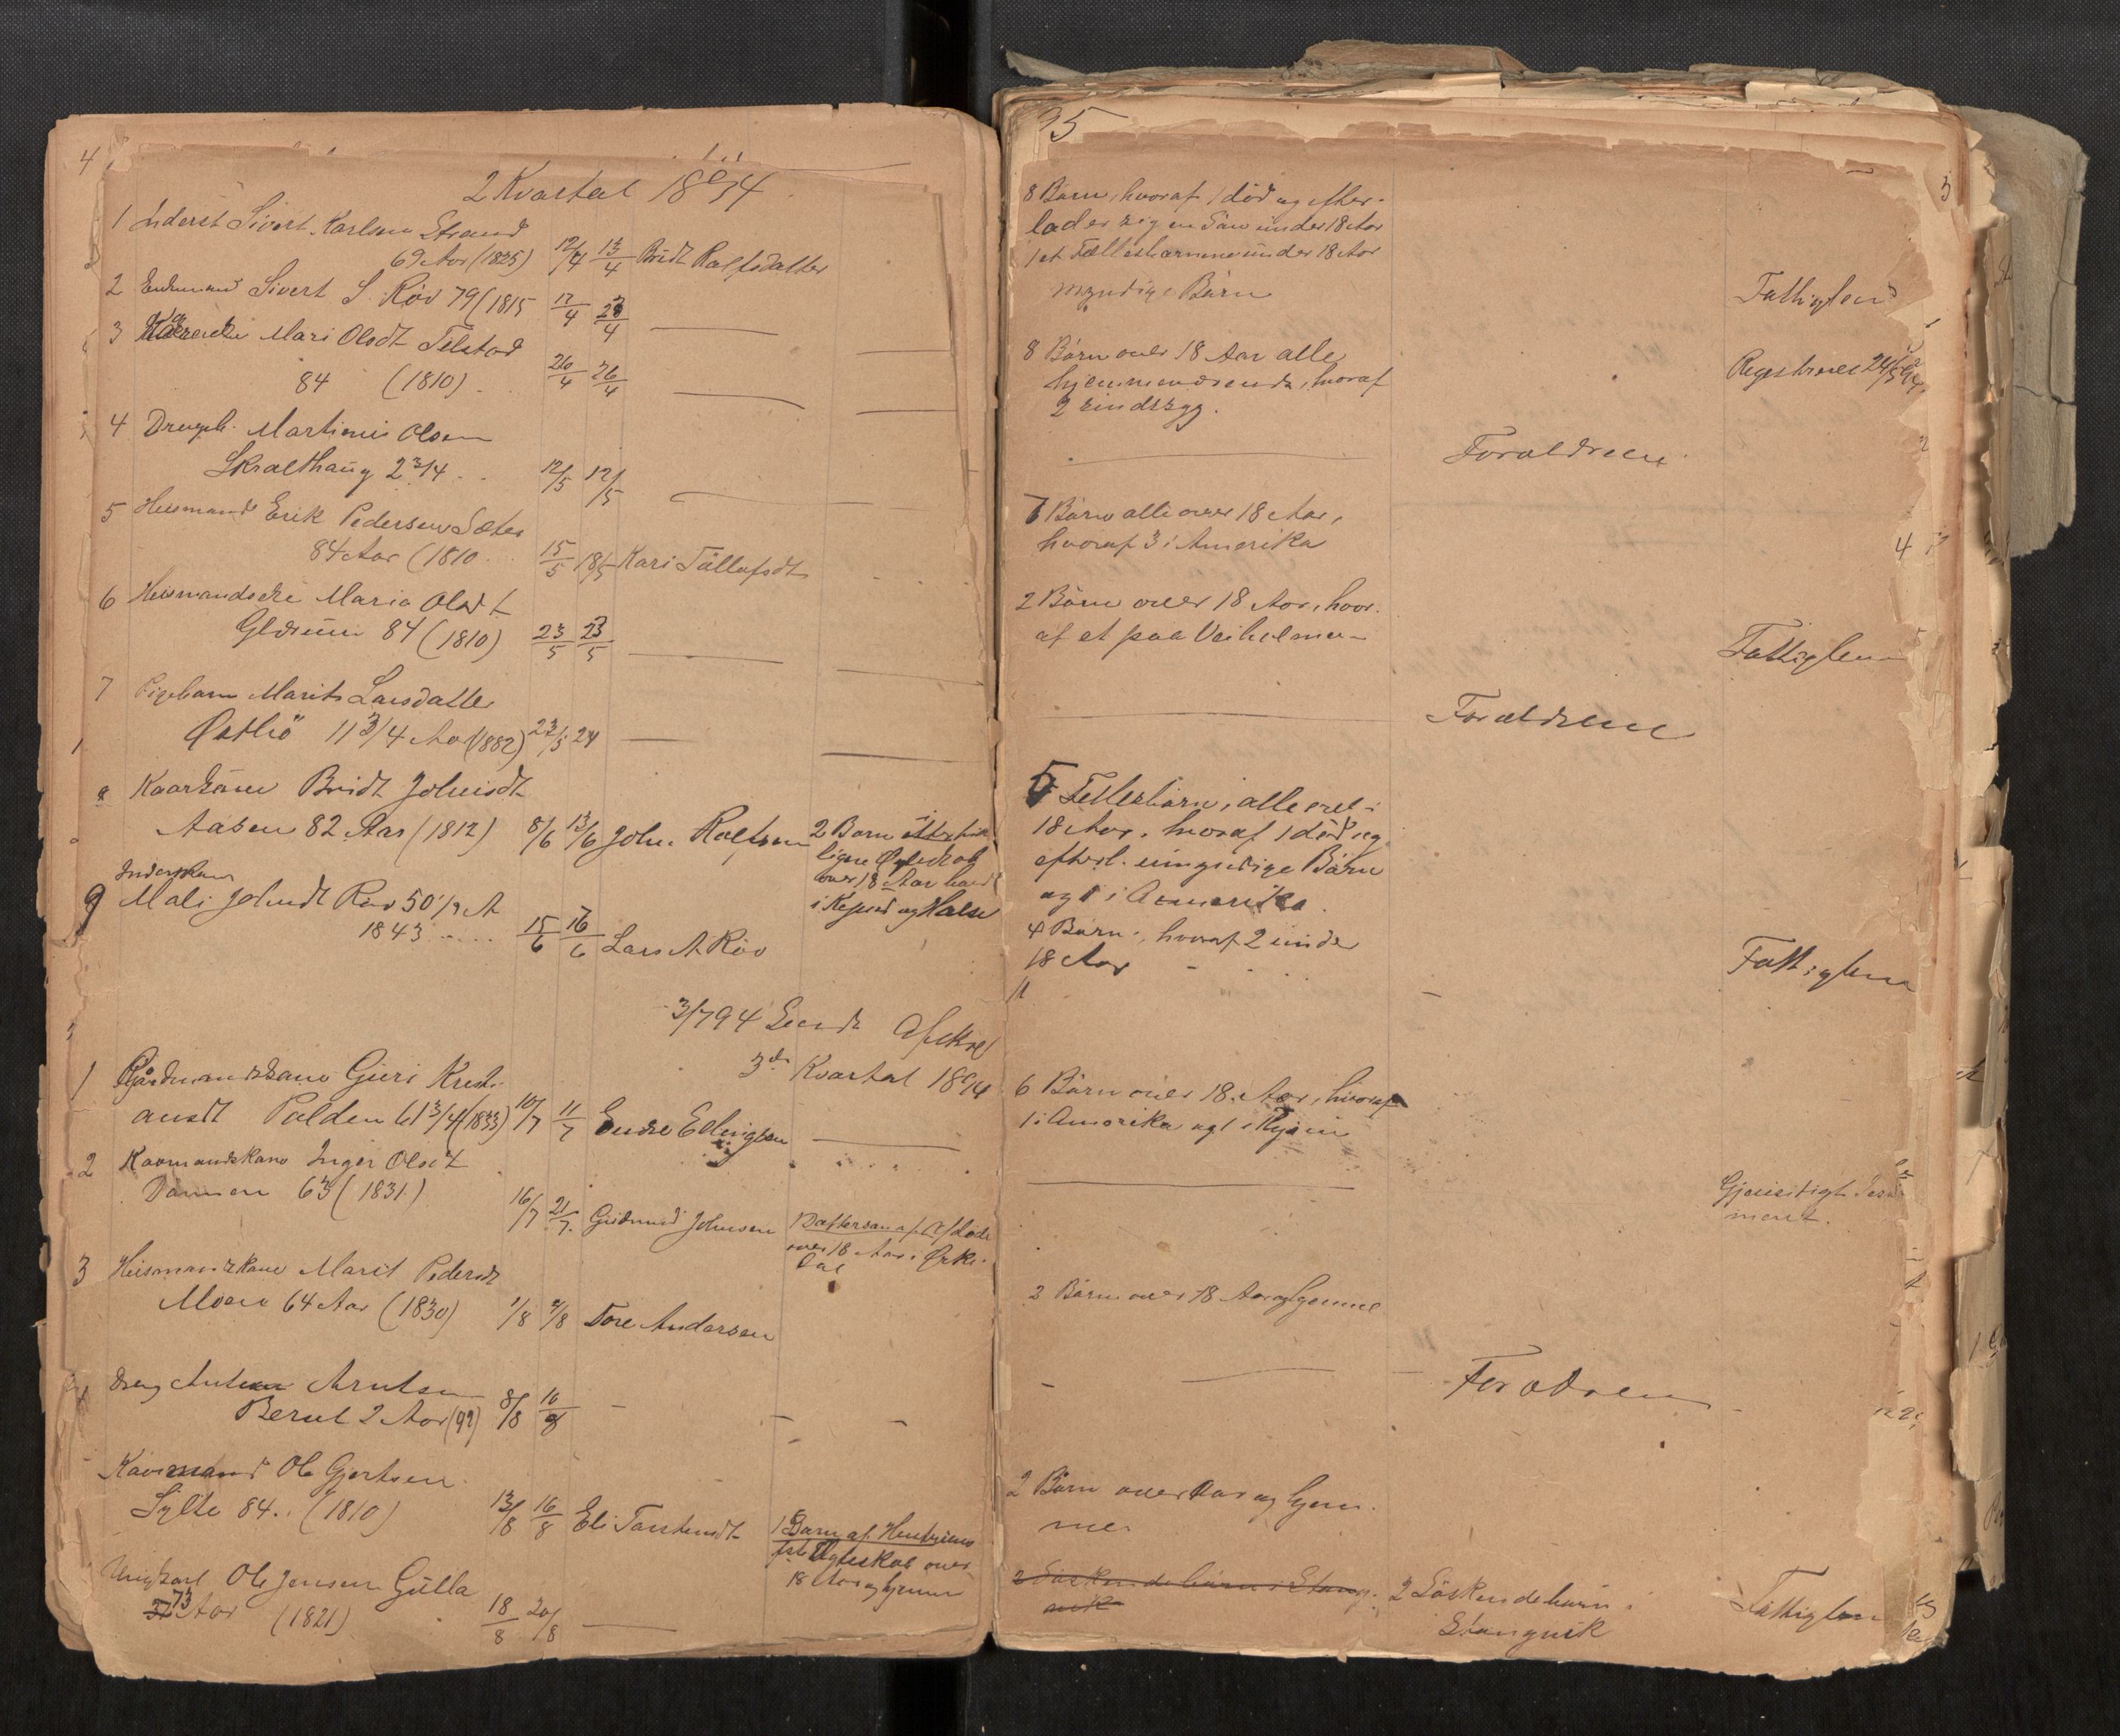 2 Kvartal 1894
1 Inderst Sivert Karlsen Strand
69 Aar (1825) 12/4 13/4 Bridt Rolfsdatter
2 Enkemand Sivert S. Röv 79 (1815 17/4 23/4
3 Mari Olsdt Telstad
84 (1810) 26/4 26/4
4 Drengeb. Martinus Olsen
Skralthaug 2 3/4 12/5 12/5
5 Husmand Erik Pedersen Sæter
84 Aar (1810 15/5 18/5 Kari Tollefsdt
6 Husmandsenke Maria Olsdt
Glærum 84 (1810) 23/5 23/5
7 Pigebarn Marit Larsdatter
Østbö 11 3/4 Aar (1882) 23/5 24
8 Kaarkone Bridt Johnsdt
Aasen 82 Aar (1812) 8/6 13/6 John Rolfsen 2 Børn
over 18 Aar
i og Halse
Inderstkone
9 Mali Johnsdt Röv 50 1/2 A
1843 15/6 16/6 Lars A Röv
3/7 94 Sendt Afskrif
3de Kvartal 1894
1 Gaardmandskone Guri Kristi-
ansdt Polden 61 3/4 (1833) 10/7 11/7 Endre Erlingsen
2 Kaarmandskone Inger Olsdt
63 (1831) 16/7 21/7 Gudmund Johnsen Dattersøn af Afdøde
over 18 Aar i Orke-
dal
3 Husmandskone Marit Pedersdt
Moen 64 Aar (1830) 1/8 2/8 Tore Andersen
Dreng Anton Arntsen
2 Aar (92) 8/8 10/8
Kaarmand Ole Gjertsen
Sylte 84 .. (1810) 13/8 16/8 Eli Torstensdt 1 Barn af
Ægteskab over
18 Aar og hjemme
Ungkarl Ole Jensen Gulla
73 Aar (1821) 18/8 20/8
95
8 Børn, hvoraf 1 død og efter-
lader sig en Søn under 18 Aar
1 et Fællesbarn under 18 Aar
myndige Børn Fattiglem
8 Børn over 18 Aar alle
hjemmeværende, hvoraf
2 sindssyg. Registreret
Forældrene
7 Børn alle over 18 Aar,
hvoraf 3 i Amerika
2 Børn over 18 Aar, hvor-
af et paa Veiholmen Fattiglem
Forældrene
5 Fellesbörn, alle over
18 Aar, hvoraf 1 död og
efterl. umyndige Börn
og 1 i Amerika
4 Börn, hvoraf 2 under
18 Aar Fattiglem
6 Börn over 18 Aar, hvoraf
1 i Amerika og 1 i
Gjensidigt Testa-
ment.
2 Börn over 18 Aar og hjemme
Forældrene
2 Börn over Aar og hjem-
me.
2 Söskendebarn i Stang-
vik 2 Söskendebarn i
Stangvik Fattiglem